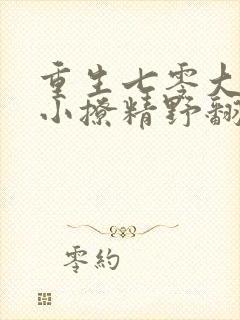 重生七零大
小撩精野翻
零約